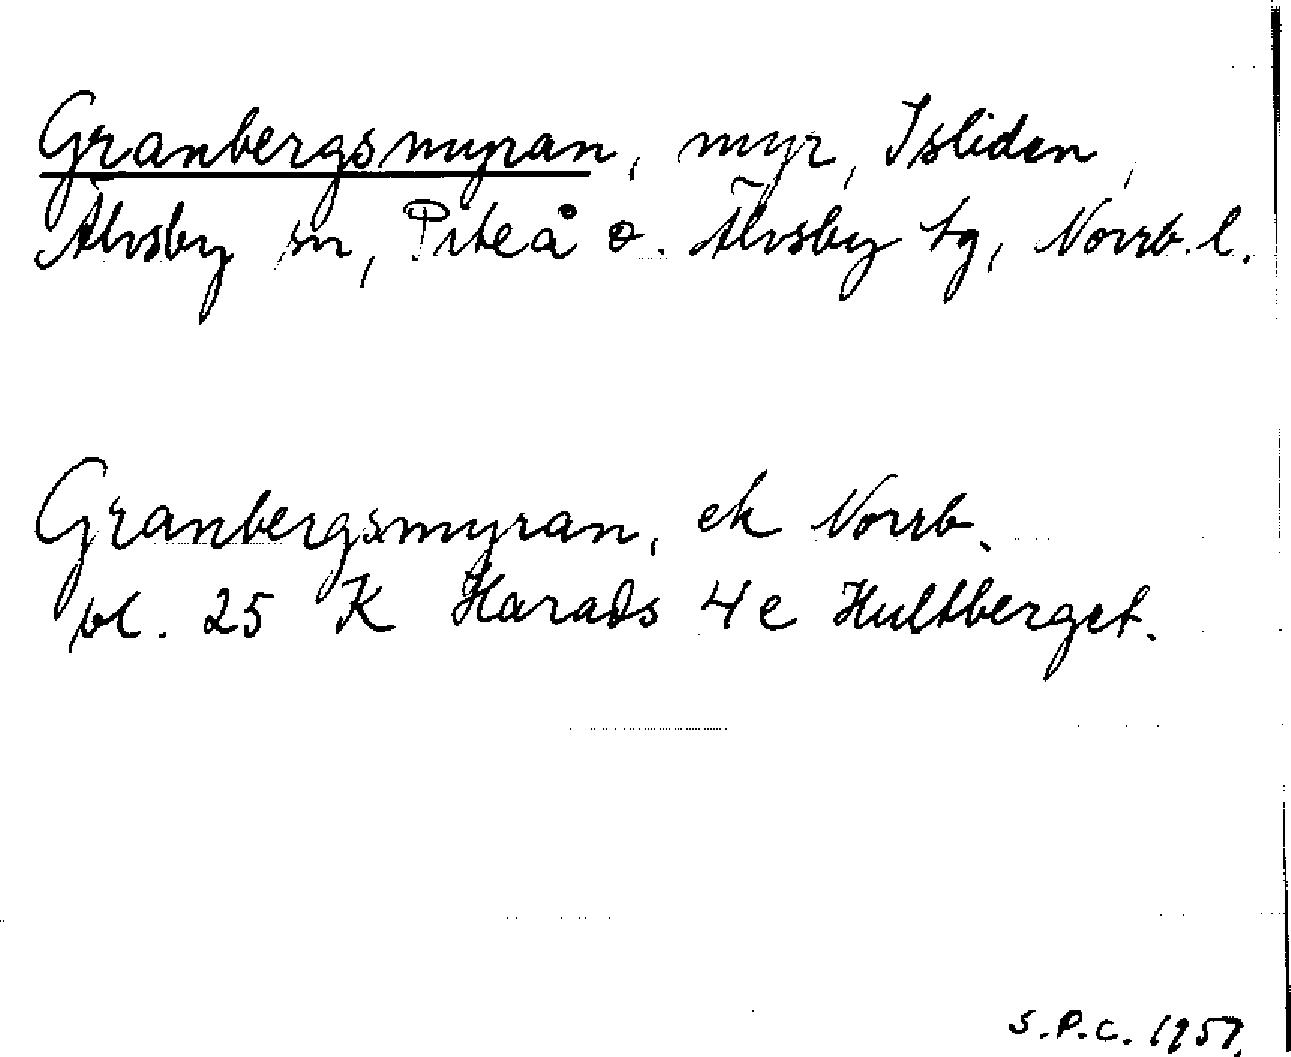 Granbergsmyran, myr, Isliden,
Älvsby sn, Piteå o. Älvsby tg, Norrb. l.
Granbergsmyran, ek Norrb.
bl. 25 K Harads 4e Hultberget.
S.P.C. 1957.